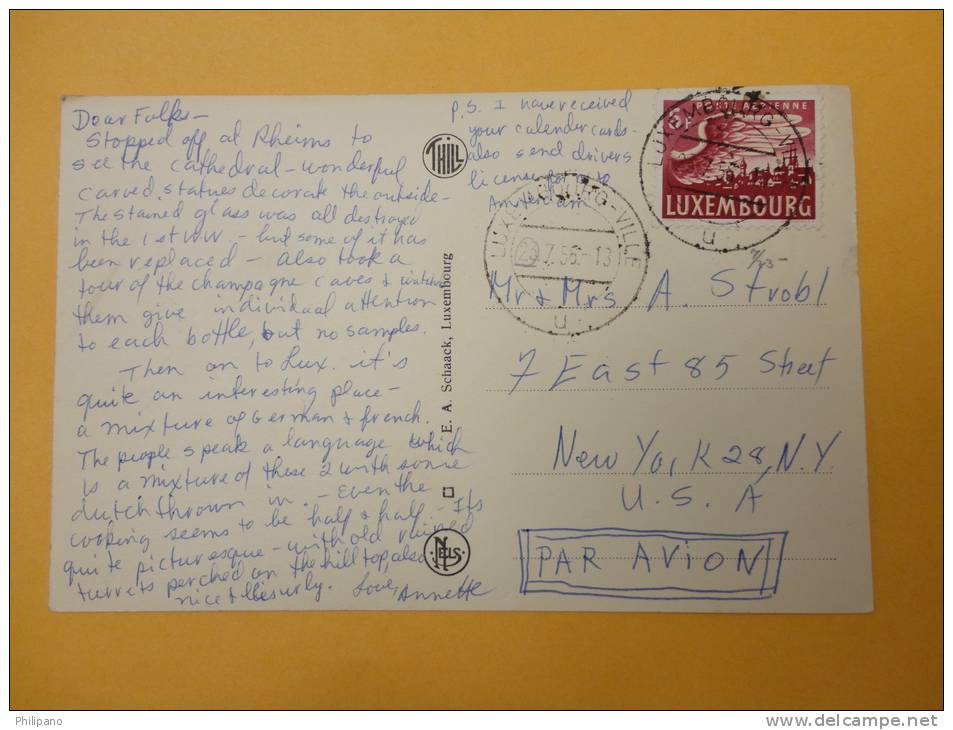 Dear Folks—
Stopped off at Rheims to
see the cathedral - wonderful
carved statues decorate the outside -
The stained glass was all destroyed
in the 1st WW - but some of it has
been replaced - Also took a
tour of the champagne caves & watched
them give individual attention
to each bottle, but no samples.
Then on to Lux. it's
quite an interesting place -
a mixture of German & french.
The people speak a language which
is a mixture of these 2 with some
dutch thrown in. - Even the
cooking seems to be half & half - Its
quite picturesque - with old ruined
turrets perched on the hill top, also
nice & liesurly. Love, Annette
P.S. I have received
your calender cards -
also send drivers
license to
Amsterdam
THILL
E. A. Schaack, Luxembourg
NELS
POSTE AÉRIENNE
LUXEMBOURG
LUXEMBOURG-VILLE
LUXEMBOURG-VILLE
7.56-13
U
U
Mr & Mrs A. Strobl
7 East 85 Street
New York 28, N.Y.
U.S.A
PAR AVION
Philipano
www.delcampe.net